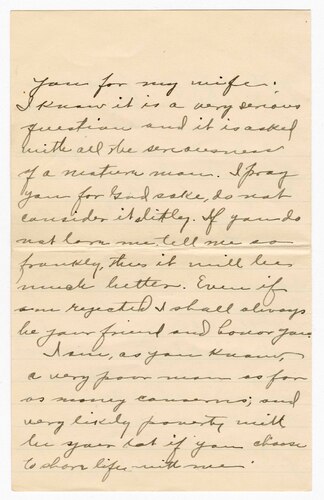 you for my wife.
I know it is a very serious
question and it is asked
with all the seriousness
of a mature man. I pray
you for God sake, do not
consider it litly. If you do
not love me, tell me so
frankly, this it will be
much better. Even if
am rejected I shall always
be your friend and honor you.
I am, as you know,
a very poor man as far
as money concerns; and
very likely poverty will
be your lot if you choose
to share life with me.